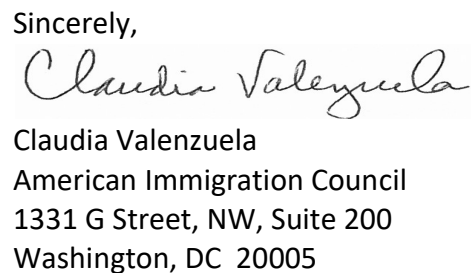 Sincerely,
Claudia Valenzuela
Claudia Valenzuela
American Immigration Council
1331 G Street, NW, Suite 200
Washington, DC  20005